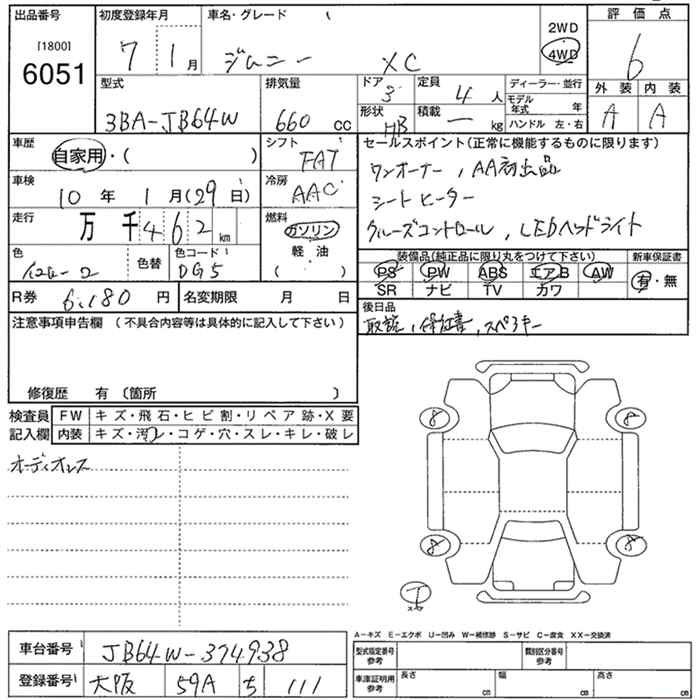 出品番号 初度登録年月 車名・グレード 評価点
[1800] 7 1月 ジムニー XC 2WD 6
6051 4WD
型式 排気量 ドア 3 定員 4人 ディーラー・並行 外装 内装
3BA-JB64W 660cc 形状 HB 積載 ー kg モデル年式 年 A A
ハンドル 左・右
車歴 シフト セールスポイント(正常に機能するものに限ります)
自家用・( ) FAT ワンオーナー, AA初出品
車検 冷房 シートヒーター
10年 1月(29日) AAC クルーズコントロール, LEDヘッドライト
走行 燃料
万 千 4 6 2 km ガソリン
軽油
( )
色 色替 色コード 装備品(純正品に限り丸をつけて下さい) 新車保証書
DG5 PS PW ABS エアB AW 有・無
SR ナビ TV カワ
R券 6,180円 名変期限 月 日 後日品
取説, 保証書, スペアキー
注意事項申告欄(不具合内容等は具体的に記入して下さい)
修復歴 有 〔箇所 〕
検査員 FW キズ・飛石・ヒビ割・リペア跡・X要
記入欄 内装 キズ・汚レ・コゲ・穴・スレ・キレ・破レ
オーディオレス
8 8
8 8
T
スペア
A-キズ E-エクボ U-凹み W-補修跡 S-サビ C-腐食 XX-交換済
車台番号 JB64W-374938 型式指定番号 参考 類別区分番号 参考
登録番号 大阪 59A ち 111 車庫証明用 参考 長さ cm 幅 cm 高さ cm